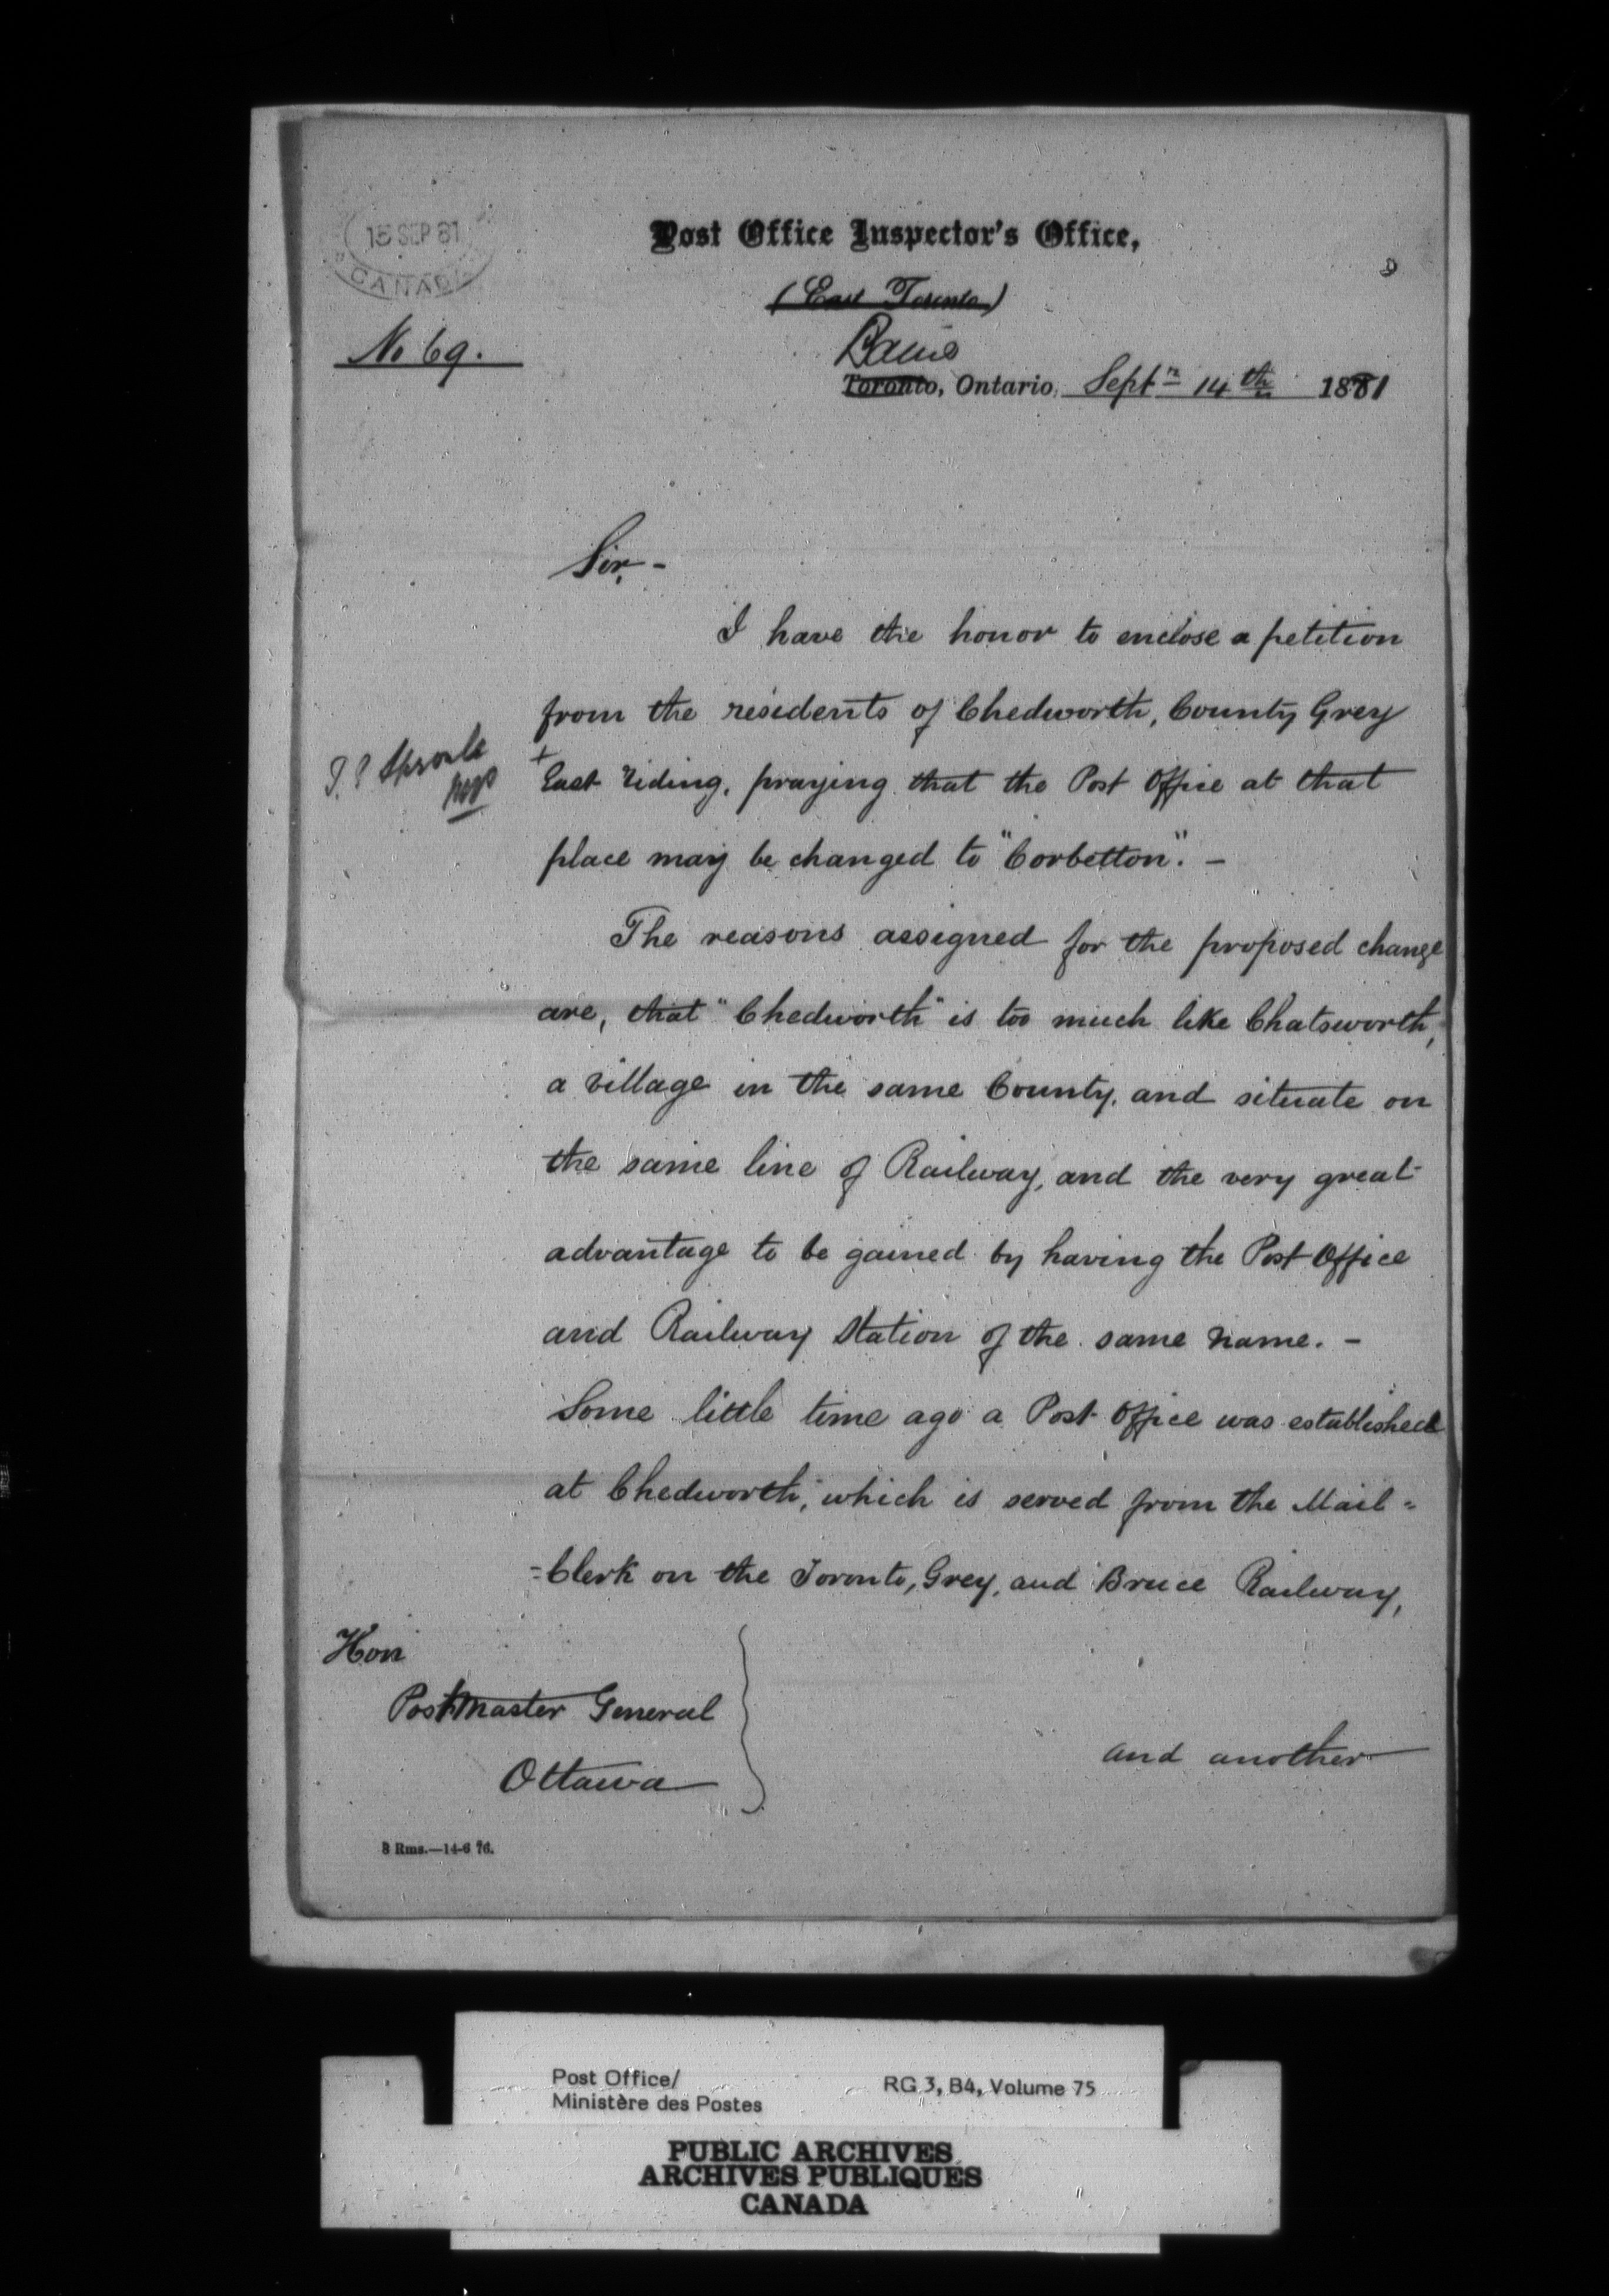 15 SEP 81
CANADA
Post Office Inspector's Office,
(East Toronto)
No 69.
Barrie
Toronto, Ontario, Septr 14th 1881
Sir,-
I have the honor to enclose a petition
from the residents of Chedworth, County Grey
T. S. Sproule
East Riding, praying that the Post Office at that
place may be changed to "Corbetton". -
The reasons assigned for the proposed change
are, that "Chedworth" is too much like Chatsworth,
a village in the same County, and situate on
the same line of Railway, and the very great
advantage to be gained by having the Post Office
and Railway Station of the same name. -
Some little time ago a Post Office was established
at Chedworth, which is served from the Mail=
=Clerk on the Toronto, Grey, and Bruce Railway,
Hon
Postmaster General
Ottawa
and another
8 Rms.—14-6 76.
Post Office/
Ministère des Postes
RG 3, B4, Volume 75
PUBLIC ARCHIVES
ARCHIVES PUBLIQUES
CANADA